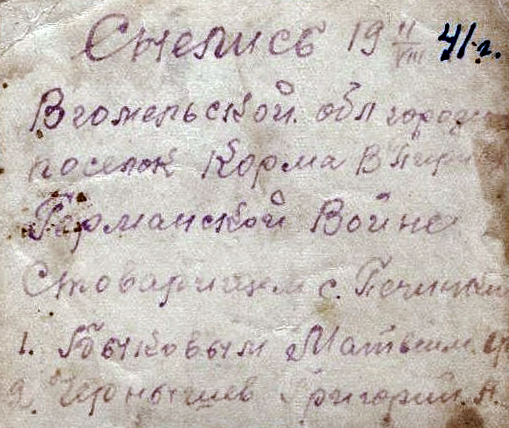 Снелись 19 II/VIII 41 г.
В гомельской обл городск
поселок Корма В Пири
Германской Войне
Стоварищем с. Печинки
1. Быковым Матвеим
2. Чернышев Григорий. А.